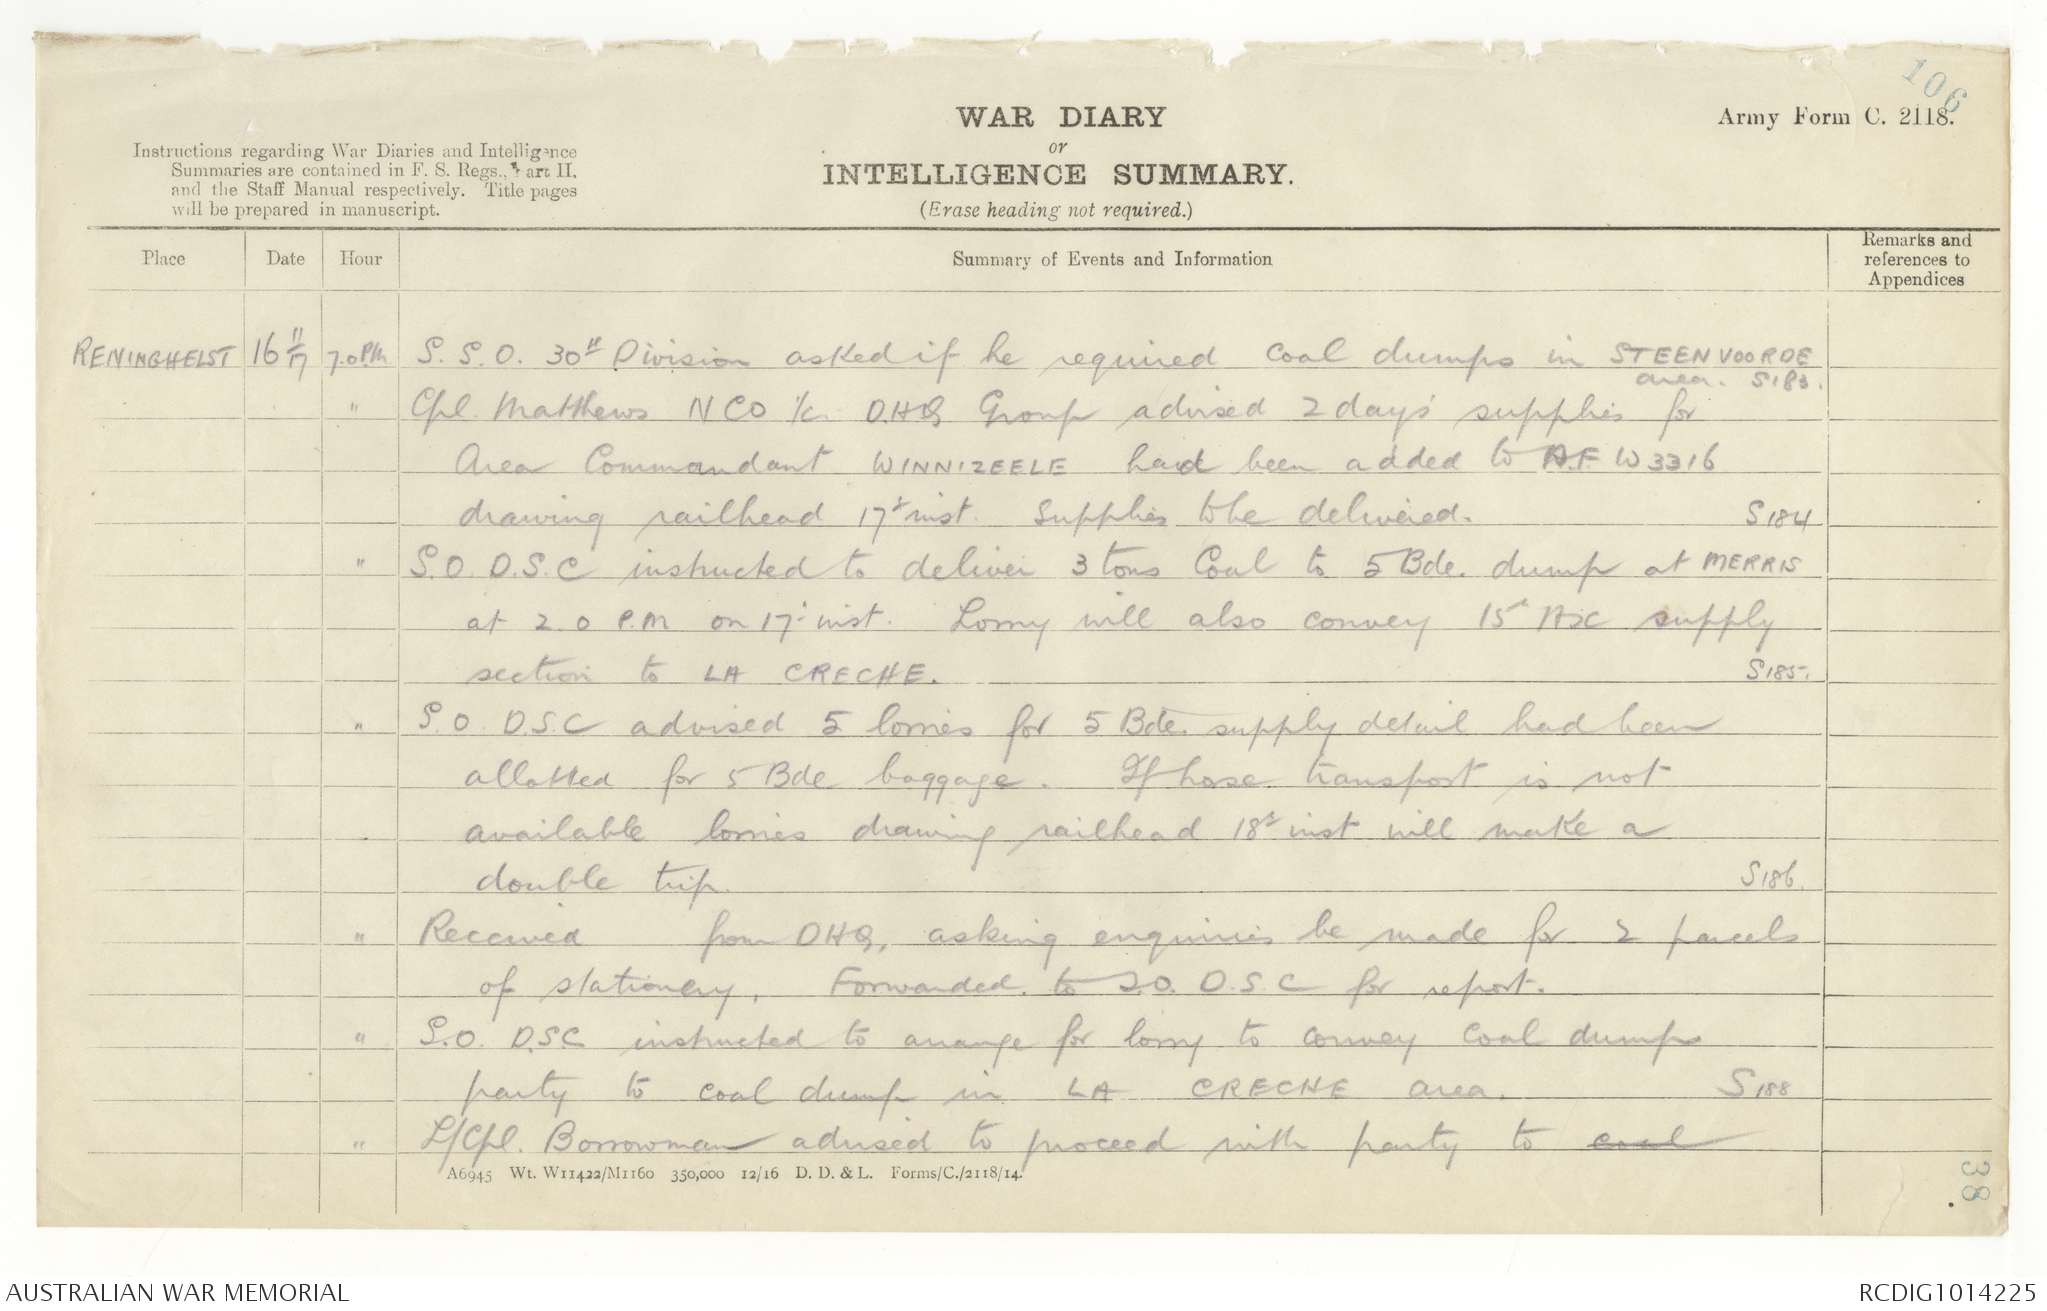 106
Army Form C. 2118.
WAR DIARY
or
INTELLIGENCE SUMMARY.
(Erase heading not required.)
Instructions regarding War Diaries and Intelligence
Summaries are contained in F. S. Regs., Part II.
and the Staff Manual respectively. Title pages
will be prepared in manuscript.
Place Date Hour Summary of Events and Information Remarks and references to Appendices
RENINGHELST 16 11/17 7.0 P.M. S. S. O. 30th Division asked if he required coal dumps in STEENVOORDE
area. S183.
" Cpl. Matthews NCO i/c D.H.Q Group advised 2 days' supplies for
Area Commandant WINNIZEELE had been added to A.F. W3316
drawing railhead 17th inst. Supplies to be delivered. S184
" S.O. D.S.C instructed to deliver 3 tons Coal to 5 Bde. dump at MERRIS
at 2.0 P.M on 17th inst. Lorry will also convey 15th ASC supply
section to LA CRECHE. S185.
" S.O. D.S.C advised 5 lorries for 5 Bde. supply detail had been
allotted for 5 Bde baggage. If horse transport is not
available lorries drawing railhead 18th inst will make a
double trip. S186.
" Received from DHQ, asking enquiries be made for 2 parcels
of stationery. Forwarded to S.O. D.S.C for report.
" S.O. D.S.C instructed to arrange for lorry to convey coal dumps
party to coal dump in LA CRECHE area. S188
" L/Cpl. Borrowman advised to proceed with party to coal
A6945 Wt. W11422/M1160 350,000 12/16 D. D. & L. Forms/C./2118/14.
38
AUSTRALIAN WAR MEMORIAL
RCDIG1014225